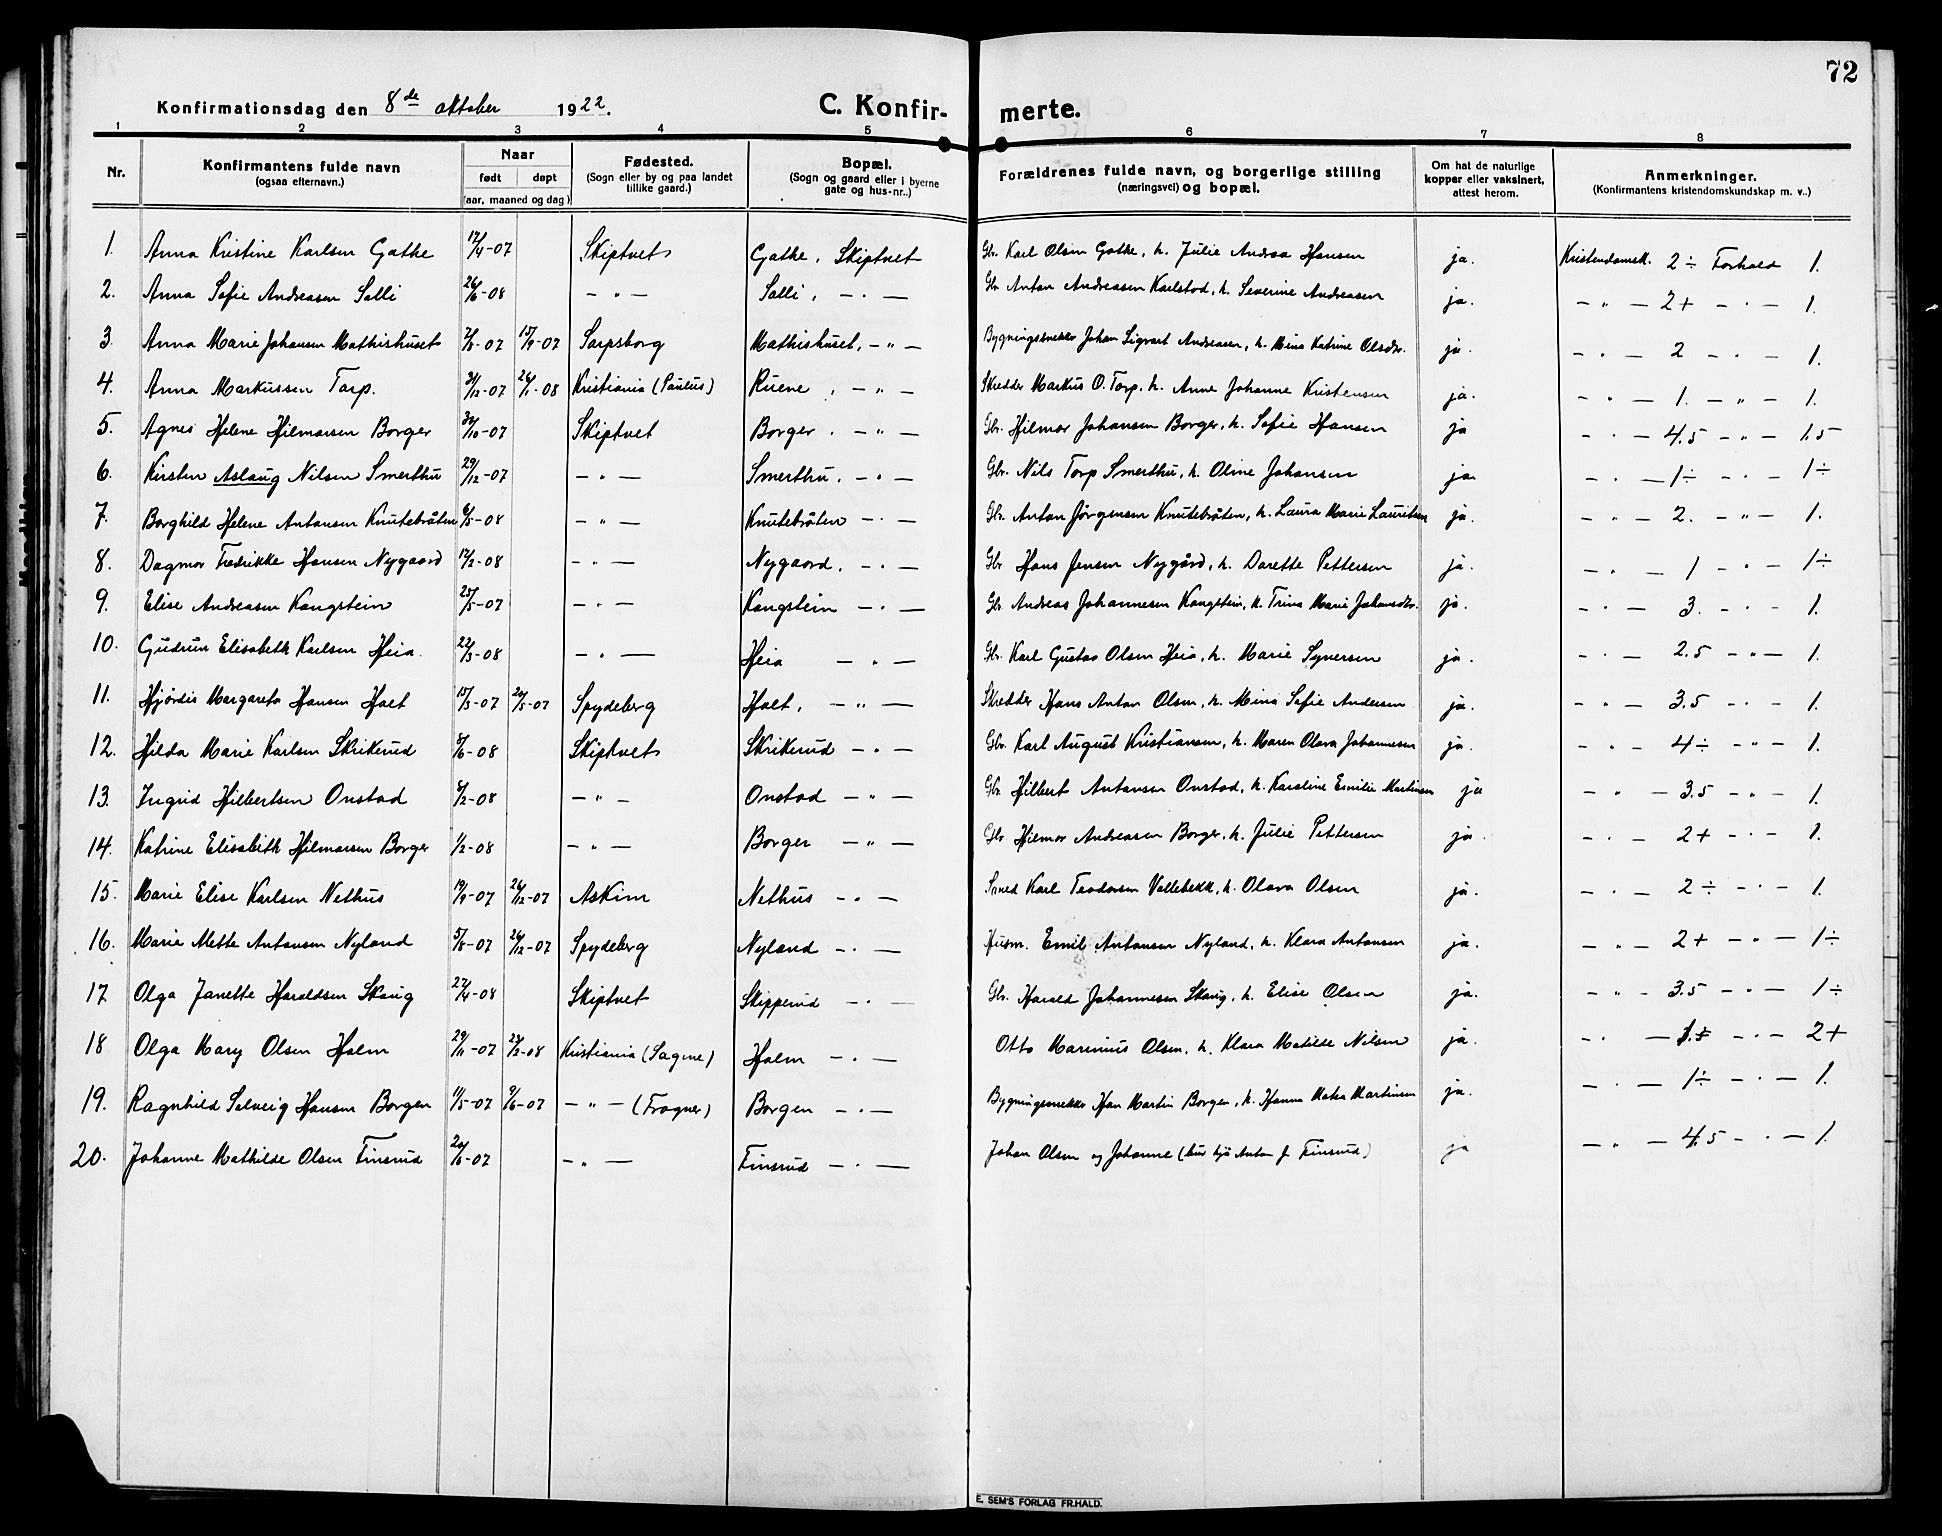 72
Konfirmationsdag den 8de oktober 1922. C. Konfir- merte.
1 2 3 4 5 6 7 8
Nr. Konfirmantens fulde navn (ogsaa efternavn.) Naar født døpt (aar, maaned og dag) Fødested. (Sogn eller by og paa landet tillike gaard.) Bopæl. (Sogn og gaard eller i byerne gate og hus-nr..) Forældrenes fulde navn, og borgerlige stilling (næringsvei) og bopæl. Om hat de naturlige kopper eller vaksinert, attest herom. Anmerkninger. (Konfirmantens kristendomskundskap m. v..)
1. Anna Kristine Karlsen Gathe 17/4-07 Skiptvet Gathe, Skiptvet Gbr. Karl Olsen Gathe, h. Julie Andrea Hansen ja. Kristendomsk. 2÷ Forhold 1.
2. Anna Sofie Andreasen Salli 26/6-08 - " - Salli, - " - Gbr Anton Andreasen Karlstad, h. Severine Andreasen ja. - " - 2+ - " - 1.
3. Anna Marie Johansen Mathishuset 7/8-07 15/9-07 Sarpsborg Mathishuset, - " - Bygningssnekker Johan Sigvart Andreasen, h. Mina Katrine Olsdtr. ja. - " - 2 - " - 1.
4. Anna Markussen Torp. 31/12-07 26/1-08 Kristiania (Paulus) Ruene, - " - Skredder Markus O. Torp, h. Anne Johanne Kristensen ja. - " - 1. - " - 1.
5. Agnes Helene Hilmarsen Borger 30/10-07 Skiptvet Borger. - " - Gbr. Hilmar Johansen Borger, h. Sofie Hansen ja - " - 4.5 - " - 1.5
6. Kirsten Aslaug Nilsen Smerthu 29/12-07 - " - Smerthu. - " - Gbr. Nils Torp Smerthu, h. Oline Johansen ja. - " - 1÷ - " - 1÷
7. Borghild Helene Antonsen Knutebråten 6/5-08 - " - Knutebråten - " - Gbr. Anton Jørgensen Knutebråten, h. Laura Marie Lauritsen ja. - " - 2. - " - 1.
8. Dagmar Fredrikke Hansen Nygaard 17/2-08 - " - Nygaard. - " - Gbr Hans Jensen Nygård, h. Dorette Pettersen ja. - " - 1 - " - 1÷
9. Elise Andreasen Kangstein 25/5-07 - " - Kangstein - " - Gbr. Andreas Johannesen Kangstein, h. Trina Marie Johansdtr. ja. - " - 3. - " - 1.
10. Gudrun Elisabeth Karlsen Heia. 22/3-08 - " - Heia - " - Gbr. Karl Gustav Olsen Heia, h. Marie Syversen ja. - " - 2.5 - " - 1.
11. Hjørdis Margareta Hansen Holt 15/3-07 20/5-07 Spydeberg Holt, - " - Skredder Hans Anton Olsen, h. Mina Sofie Andersen ja. - " - 3.5 - " - 1.
12. Hilda Marie Karlsen Skrikerud 8/6-08 Skiptvet Skrikerud - " - Gbr. Karl August Kristiansen, h. Maren Olava Johannesen ja. - " - 4÷ - " - 1.
13. Ingrid Hilbertsen Onstad 6/2-08 - " - Onstad - " - Gbr. Hilbert Antonsen Onstad, h. Karoline Emilie Martinsen ja - " - 3.5 - " - 1.
14. Katrine Elisabeth Hilmarsen Borger 1/2-08 - " - Borger - " - Gbr Hilmar Andreasen Borger, h. Julie Pettersen ja. - " - 2+ - " - 1.
15. Marie Elise Karlsen Nethus 19/9-07 26/12-07 Askim Nethus - " - Smed Karl Teodorsen Vallebekk, h. Olava Olsen ja. - " - 2÷ - " - 1.
16. Marie Mette Antonsen Nyland 5/8-07 26/12-07 Spydeberg Nyland - " - Husm. Emil Antonsen Nyland, h. Klara Antonsen ja. - " - 2+ - " - 1÷
17 Olga Janette Haraldsen Skaug 27/4-08 Skiptvet Skipperud - " - Gbr. Harald Johannesen Skaug, h. Elise Olsen ja. - " - 3.5 - " - 1÷
18 Olga Mary Olsen Holm 29/11-07 23/2-08 Kristiania (Sagene) Holm - " - Otto Marinius Olsen, h. Klara Matilde Nilsen ja. - " - - " - 2+
19. Ragnhild Solveig Hansen Borgen 11/5-07 9/6-07 - " - (Frogner) Borgen - " - Bygningssnekker Hans Martin Borgen, h. Hanna Martinsen ja. - " - 1÷ - " - 1.
20. Johanne Mathilde Olsen Finsrud 20/6-07 - " - Finsrud - " - Johan Olsen og Johanne (bur hjå Anton Finsrud) ja - " - 4.5 - " - 1.
E. SEM'S FORLAG FR.HALD.